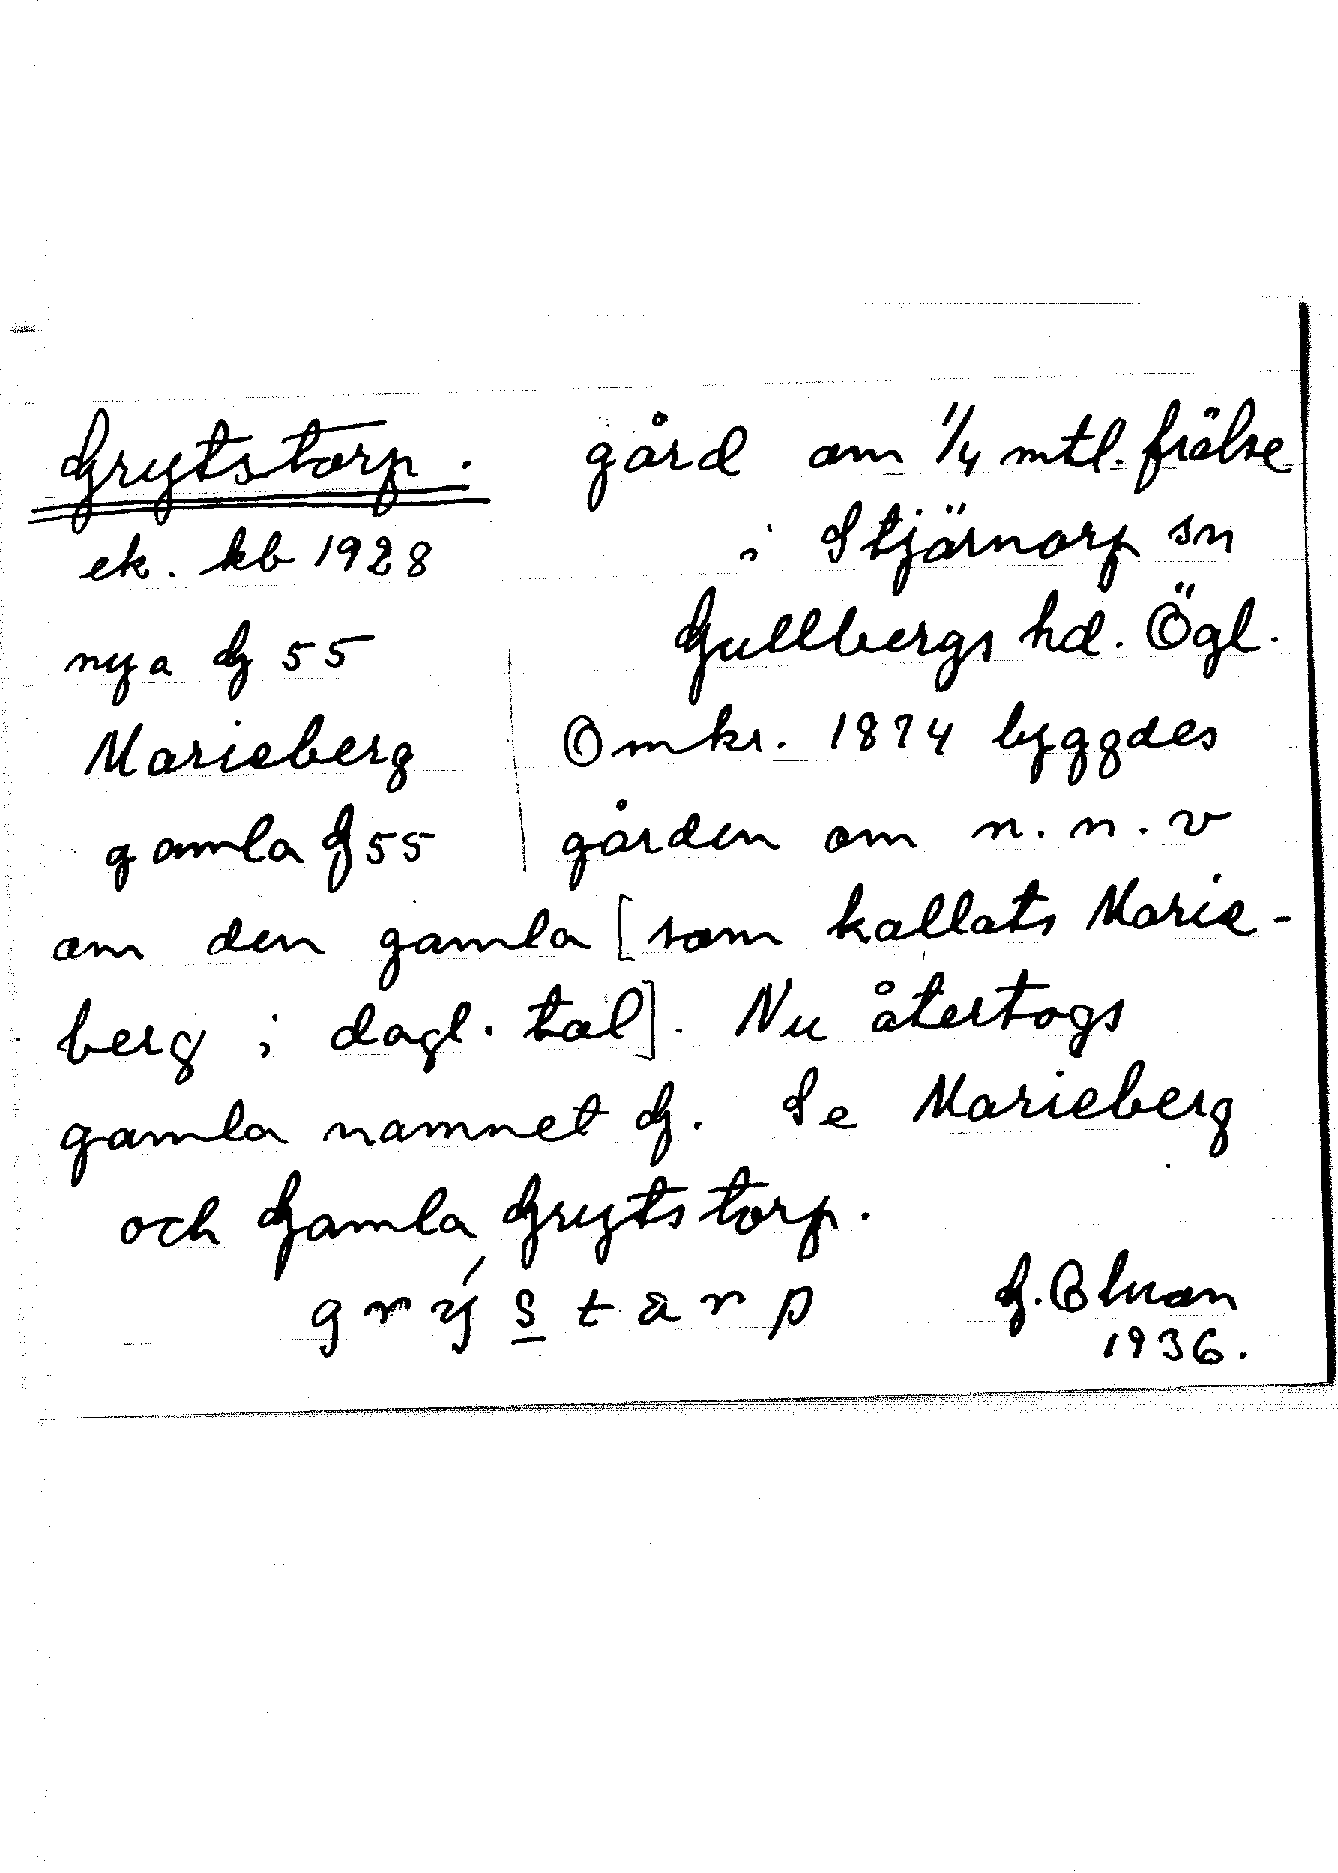 Grytstorp. gård om 1/4 mtl. frälse
ek. kb 1928 i Stjärnorp sn
nya G 55 Gullbergs hd. Ögl.
Marieberg Omkr. 1874 byggdes
gamla G 55 gården om n. n. v
om den gamla [som kallats Marie-
berg i dagl. tal]. Nu återtogs
gamla namnet G. Se Marieberg
och Gamla Grytstorp.
grýstarp G.
1936.